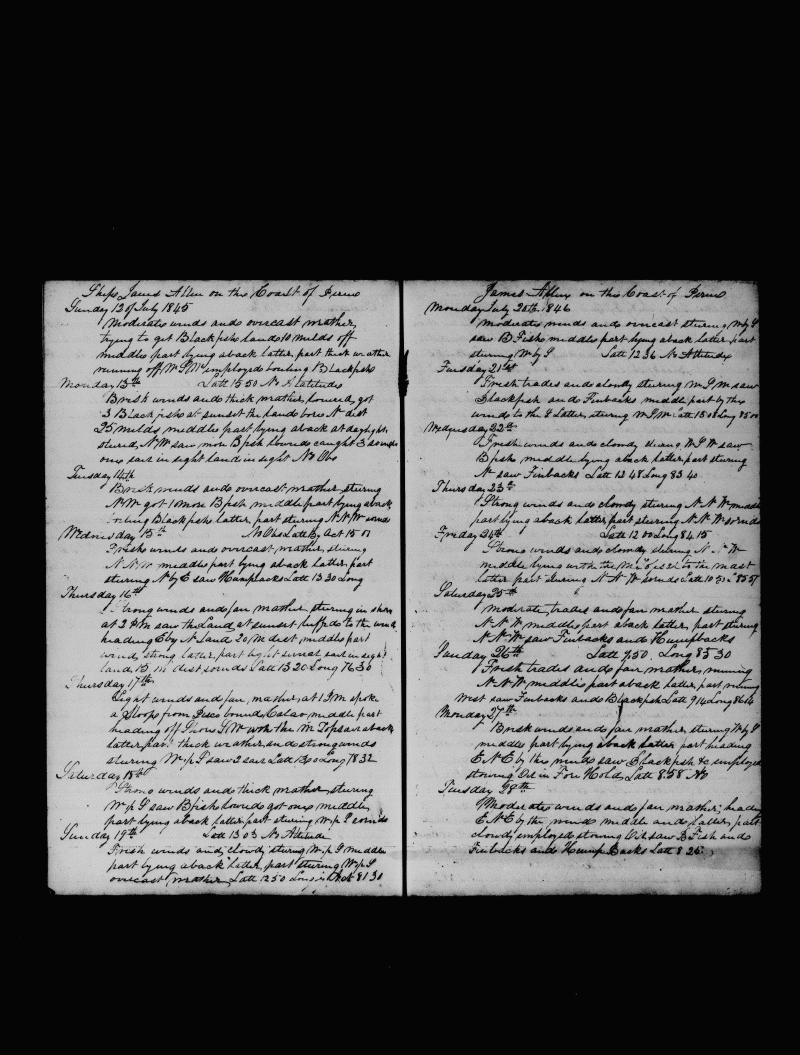 Ships James Allen on the Coast of Perue
Sunday 12 of July 1845
Moderate winds and overcast weather
trying to get Blackfish land 10 milds off
middle part lying aback latter part thick weather
running off W employed boiling Blackfish
Monday 13th Latt 15 50 No
Brisk winds and thick weather lowered got
3 Blackfish at sunset the land bore N dist
25 milds middle part lying aback at daylight
stured N W saw more B fish lowered caught 3
one sail in sight land in sight No Obs
Tuesday 14th
Brisk winds and overcast weather sturing
N W got 1 more B fish middle part lying aback
boiling Blackfish latter part sturing N N W
Wednesday 15th No Obs Latt by Act 15 01
Fresh winds and overcast weather sturing
N N W middle part lying aback latter part
sturing N by E saw Humpbacks Latt 13 30 Long
Thursday 16th
Strong winds and fair weather sturing in shore
at 2 PM saw the Land at sunset luffd to the wind
heading E by N Land 20 M dist middle part
wind strong latter part light sail in sight
land 15 m dist Latt 13 20 Long 76 30
Thursday 17th
Light winds and fair weather at 1 PM spoke
a Sloop from Pisco bound Calao middle part
heading off Shore S W with the M Topsail aback
latter part thick weather and strong winds
sturing W p S saw 2 sails Latt Long 78 32
Saturday 18th
Strong winds and thick weather sturing
W p S saw B fish lowered got one middle
part lying aback latter part sturing W p S
Sunday 19th Latt 13 03 No Altitude
Fresh winds and cloudy sturing W p S middle
part lying aback latter part sturing W p S
overcast weather Latt 12 50 Long 81 30
James Allen on the Coast of Perue
Monday July 20th 1846
moderate winds and overcast sturing W by S
saw B Fish middle part lying aback latter part
sturing W by S Latt 12 36 No Altitude
Tuesday 21st
Fresh trades and cloudy sturing saw
Blackfish and Finbacks middle part by the
wind to the S latter sturing Latt 13 08 Long
Wednesday 22nd
Fresh winds and cloudy sturing saw
B fish middle lying aback latter part sturing
N saw Finbacks Latt 12 48 Long 83 40
Thursday 23d
Strong winds and cloudy sturing N N W middle
part lying aback latter part sturing N N W
Friday 24th Latt 12 00 Long 84 15
Strong winds and cloudy sturing N N W
middle lying with the M to the mast
latter part sturing N N W Latt 10 Long 85 57
Saturday 25th
moderate trades and fair weather sturing
N N W middle part aback latter part sturing
N N W saw Finbacks and Humpbacks
Sunday 26th Latt 9 50 Long 85 30
Fresh trades and fair weather runing
N N W middle part aback latter part runing
West saw Finbacks and Blackfish Latt 9 14 Long 86 14
Monday 27th
Brisk winds and fair weather sturing W by S
middle part lying aback latter part heading
E N E by the wind saw Blackfish & employed
stowing Oil in Fore Hold Latt 8 58 No
Tuesday 28th
Moderate winds and fair weather heading
E N E by the wind middle and latter part
cloudy employed stowing Oil saw B Fish and
Finbacks and Hump Backs Latt 8 25